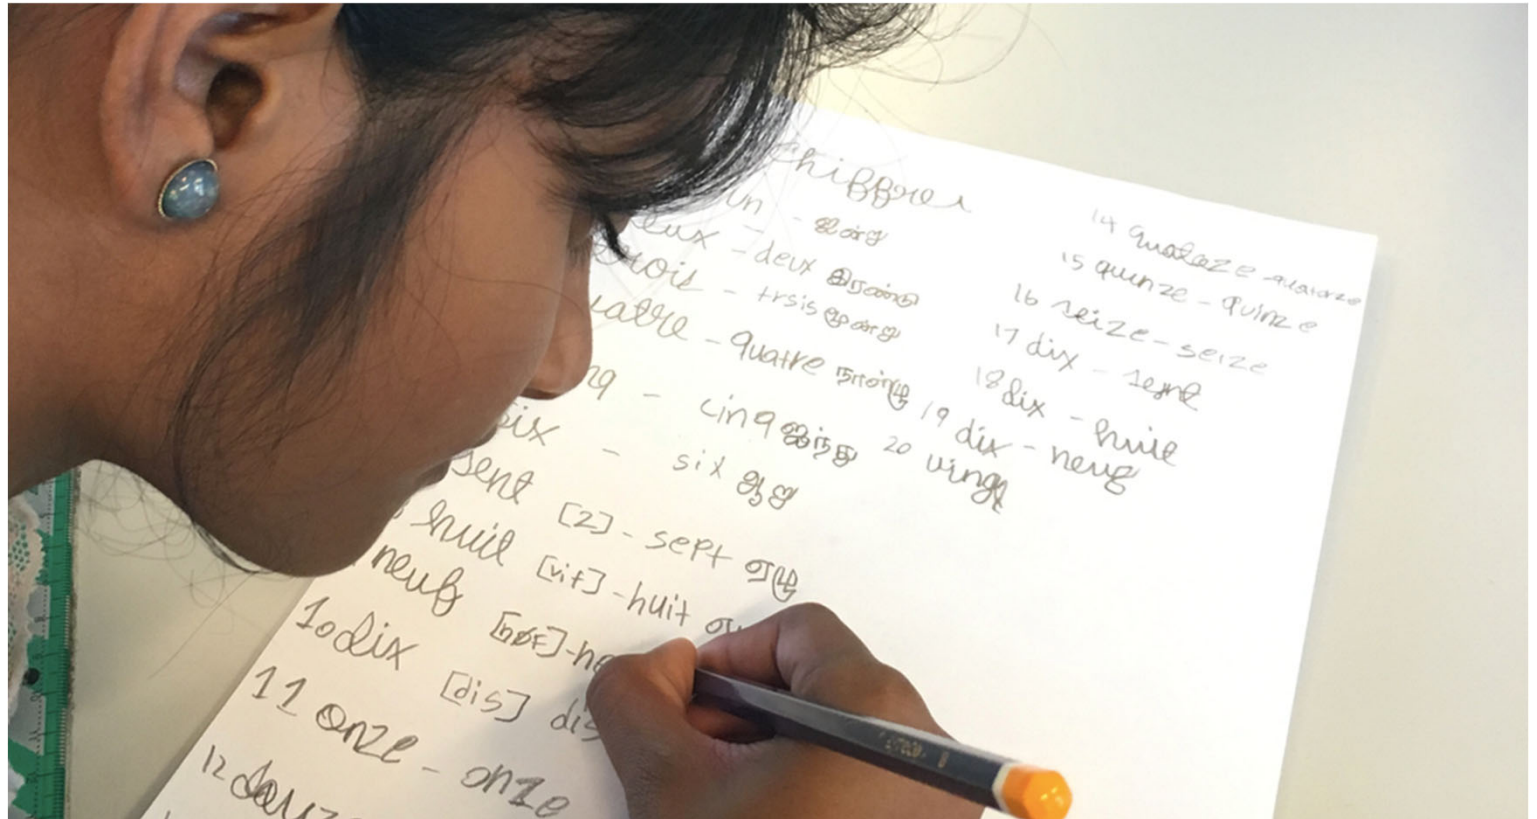 chiffres
un - ஒன்று
deux - deux இரண்டு
trois - trsis மூன்று
quatre - quatre நான்கு
cinq ஐந்து
six - six ஆறு
sept [2] - sept ஏழு
huit [vit] - huit
neuf [nøf] -
10 dix [dis] dis
11 onze - onze
12 douz
14 quatoze - quatorze
15 quinze - quinze
16 seize - seize
17 dix - sept
18 dix - huit
19 dix - neuf
20 vingt